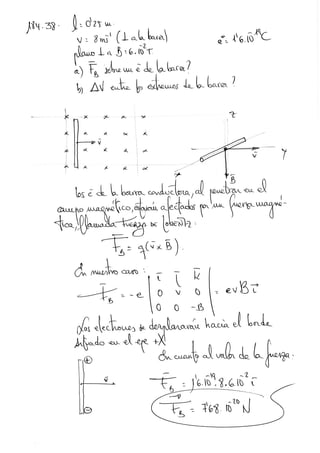 184.38. l = 0'25 m.
v = 8 ms⁻¹ (⊥ a la barra) e⁻ = 1'6.10⁻¹⁹ C
plano ⊥ a B = 6.10⁻² T
a) F_B sobre un ē de la barra?
b) ΔV entre los extremos de la barra?
z
v
v y
B
los ē de la barra conductora, al penetrar en el
campo magnético, estarán afectados por una fuerza magné-
tica, llamada fuerza de LORENTZ:
F_B = q(v × B).
En nuestro caso:
i j k
F_B = -e 0 v 0 = evB i
0 0 -B
Los electrones se desplazarán hacia el borde
situado en el eje +X
En cuanto al valor de la fuerza.
⊕
v
F_B = 1'6.10⁻¹⁹.8.6.10⁻² i
⊖
F_B = 7'68.10⁻²⁰ N